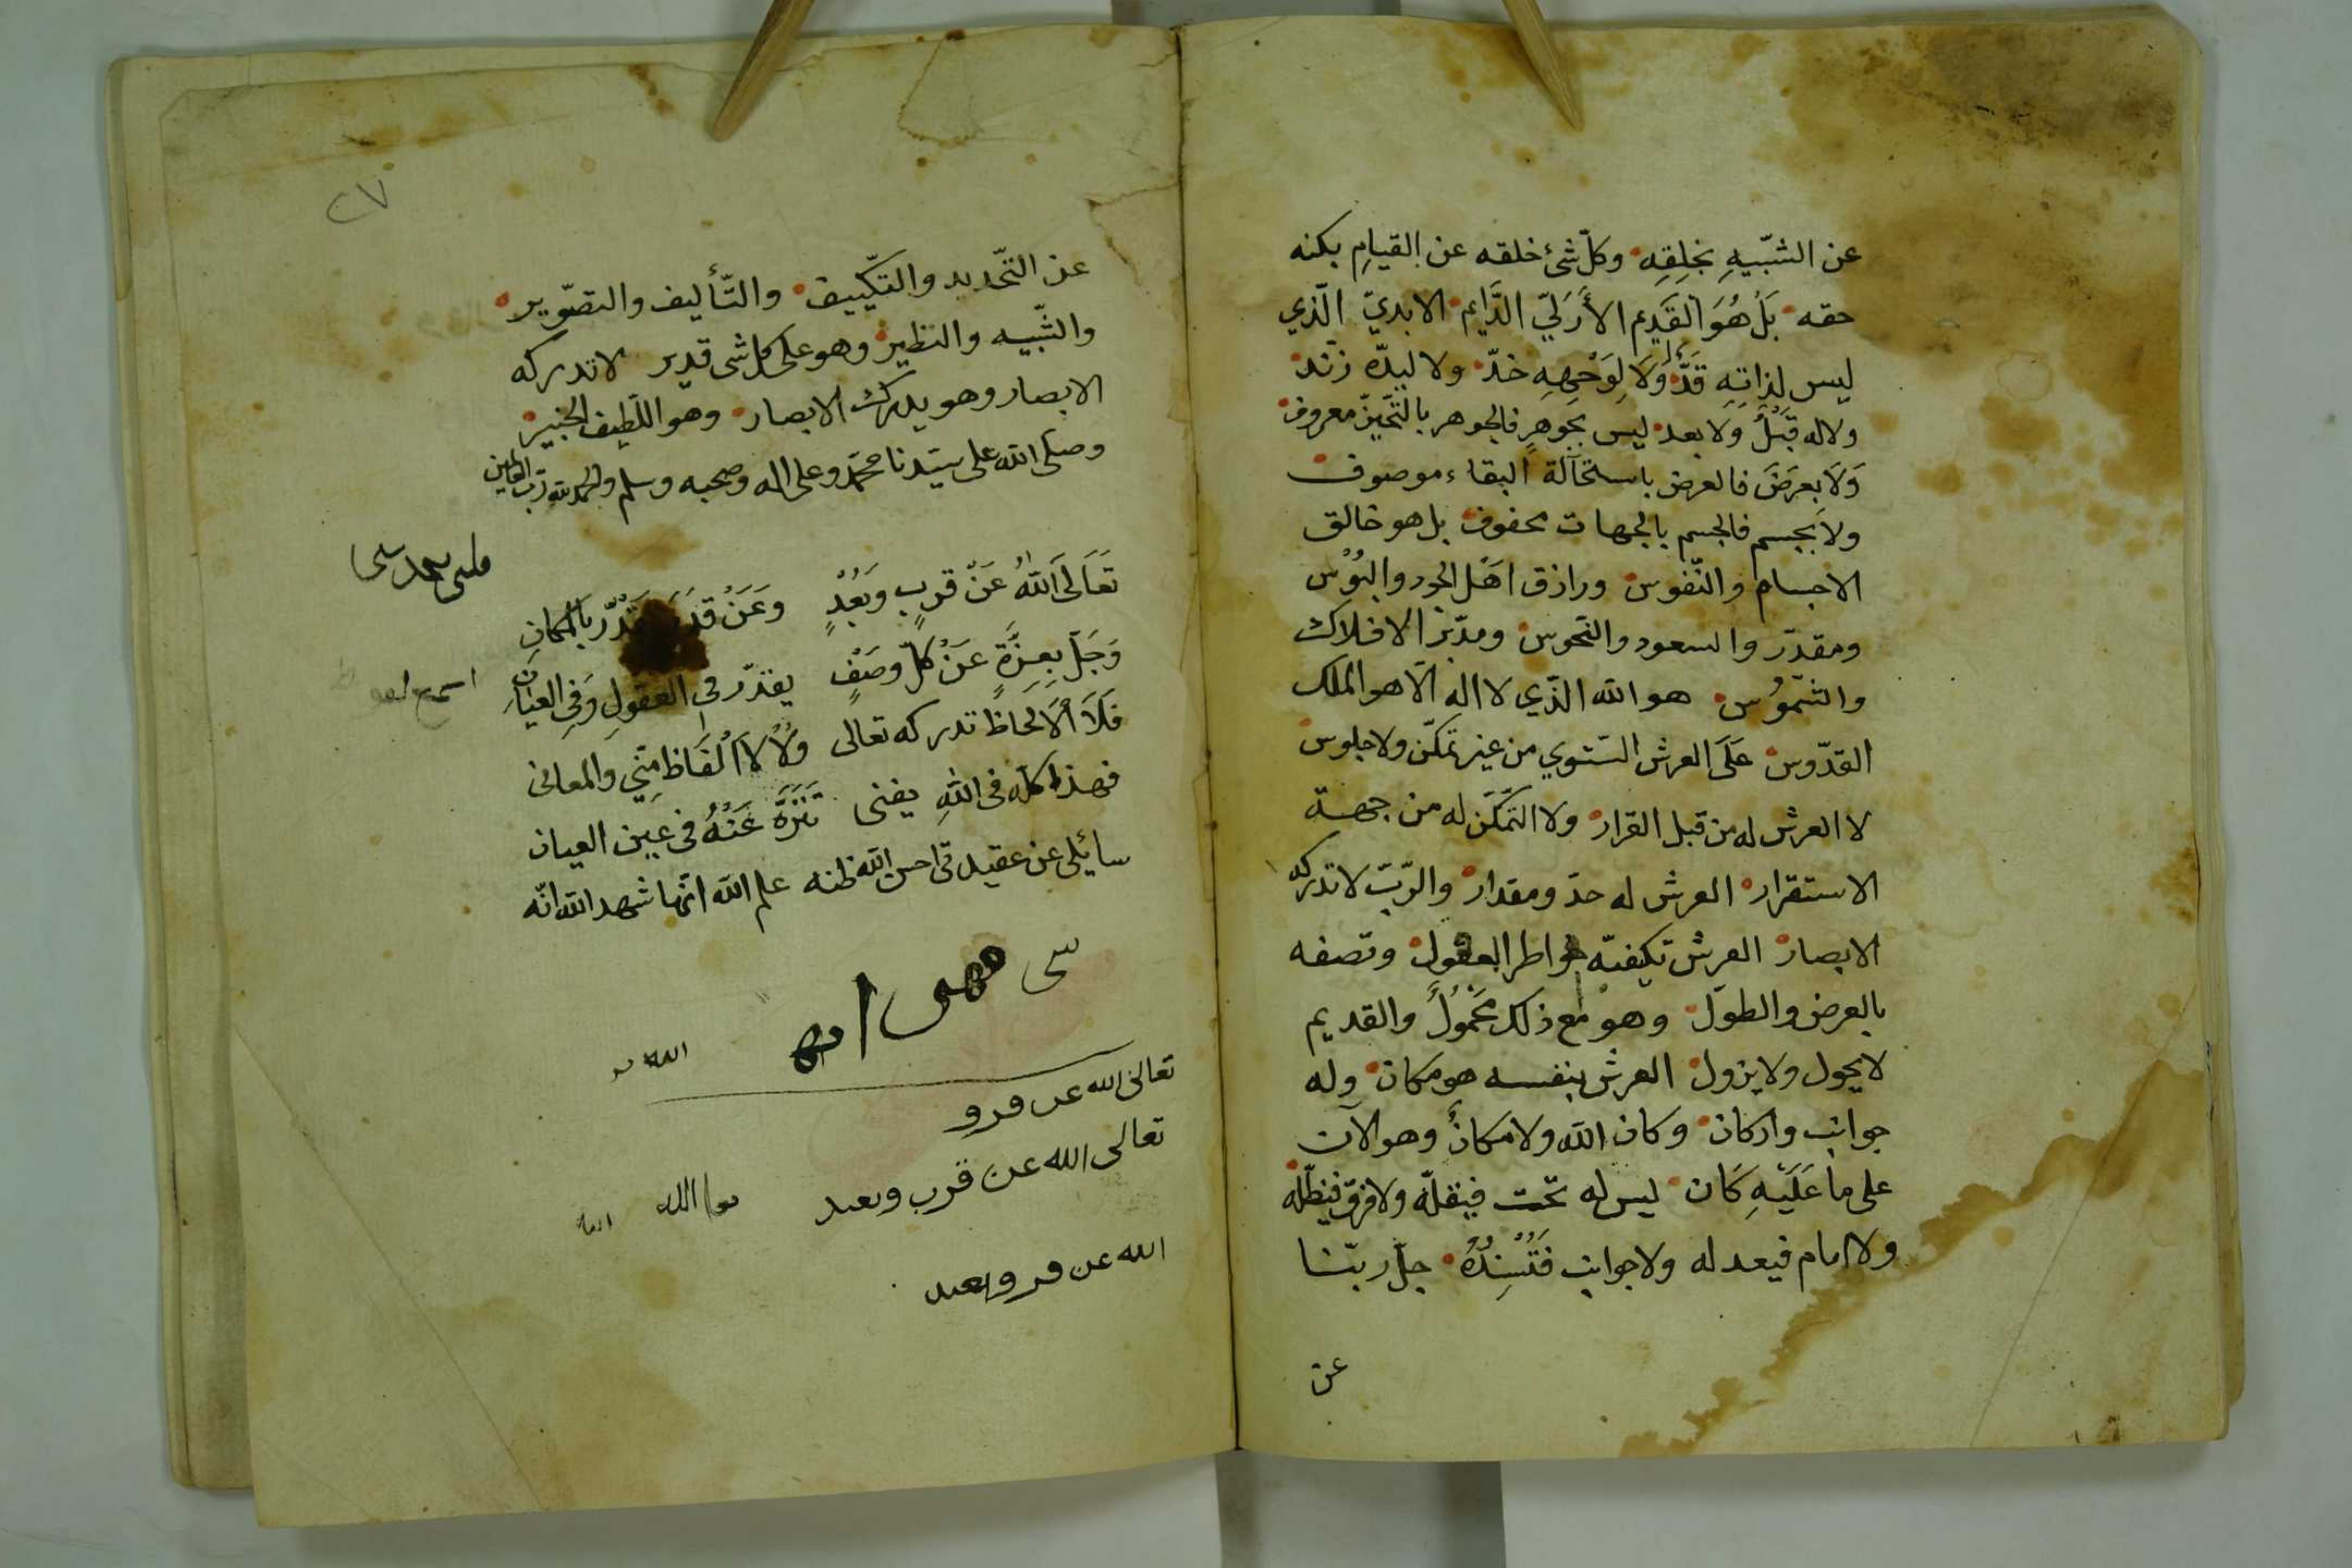 عن الشبّيهِ بخلقِهِ وكلّ شئ خلقه عن القيامِ بكنه
حقه بَلْ هُوَ القَدِيم الأَزَلِيّ الدَّايم الابديّ الّذي
ليس لذاتِهِ قَدٌّ وَلَا لِوَجْهِهِ خدّ ولا ليدّه زند
ولا له قَبْلٌ وَلَا بعد ليس بجَوهرٍ فالجوهر بالتّحيّز معروف
وَلَا بعرَضَ فالعرض باستحآلة البقاء موصوف
ولا بجسم فالجسم بالجهات محفوف بل هو خالق
الاجسام والنّفوس ورازق اهَل الجود والبُوْس
ومقدّر والسعود والنّحوس ومدّبر الافلاك
والشّموُس هو الله الذّي لا اله الّا هو الملك
القدّوس عَلَى العرش استّوي من غير تمكّن ولا جلوس
لا العرش له من قبل القرار ولا التمّكّن له من جهة
الاستقرار العرش له حدّ ومقدار والرّبّ لا تدركه
الابصار العرش تكيفّه خواطر العقول وتصفه
بالعرض والطول وهو مع ذلك محَمُولٌ والقديم
لا يحول ولا يزول العرش بنفسه هو مكان وله
جوانب واركان وكان الله ولا مكانٌ وهو الآن
على ما عَلَيْهِ كَان ليس له تحّت فيقلّه ولا فوق فيظلّه
ولا امام فيعد له ولا جوانب فَتُسْنِدُهُ جلّ ربّنا
عن
٢٧
عن التحّديد والتكّييف والتّأليف والتصّوير
والشّبيه والنظير وهو على كل شى قدير لا تدركه
الابصار وهو يدرك الابصار وهو اللّطيف الخبير
وصلى الله على سيّدنا محمّد وعلى اله وصحبه وسلم والحمد لله ربّ العالمين
تَعَالَى اَللّهُ عَنْ قربٍ وَبُعْدٍ وَعَنْ بالمكانِ
وَجَلّ بِعِزَّةٍ عَنْ كلّ وصَفٍ يقدّر فى العقولِ وَفِى العيَانِ
فَلَا أَلَالحاظ تدركه تعالى وَلْا لا اَلْفَاظ منِّي والمعانى
فهذا كلّه فى اللهِ يفنى تَنَزَّهَ عَنْهُ فى عين العيان
سائلى عن عقيدتى احسن الله ظنه علم الله انّها شهد الله انّه
الله
تعالى الله عن
تعالى الله عن قرب وبعد
الله
الله عن وبعد